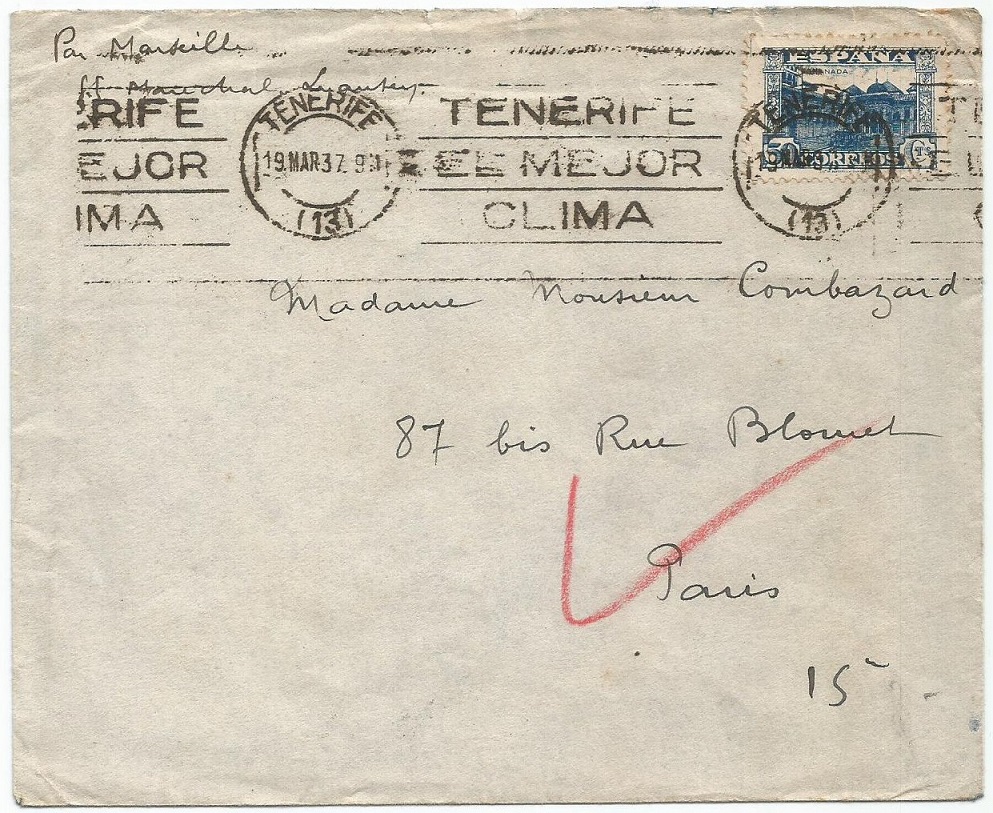 Par Marseille
ff Maréchal Lyautey
ESPAÑA
GRANADA
50 CORREOS Cts
RIFE
EJOR
IMA
TENERIFE
19.MAR37.9
(13)
TENERIFE
EL MEJOR
CLIMA
TENERIFE
(13)
Madame Monsieur Combazard
87 bis Rue Blomet
Paris
15